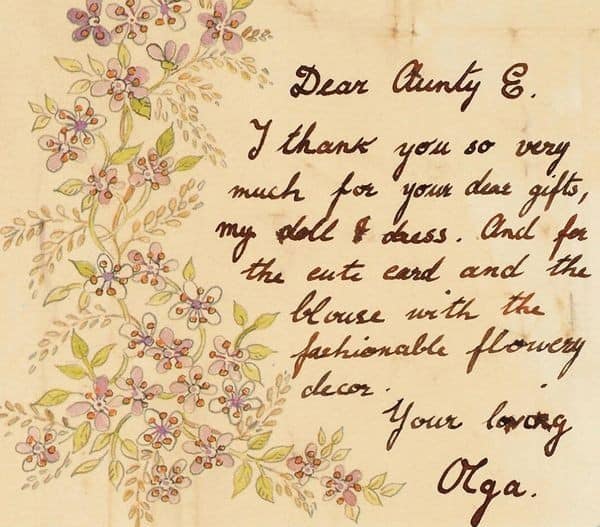 Dear Aunty E.
I thank you so very
much for your dear gifts,
my doll & dress. And for
the cute card and the
blouse with the
fashionable flowery
decor.
Your loving
Olga.